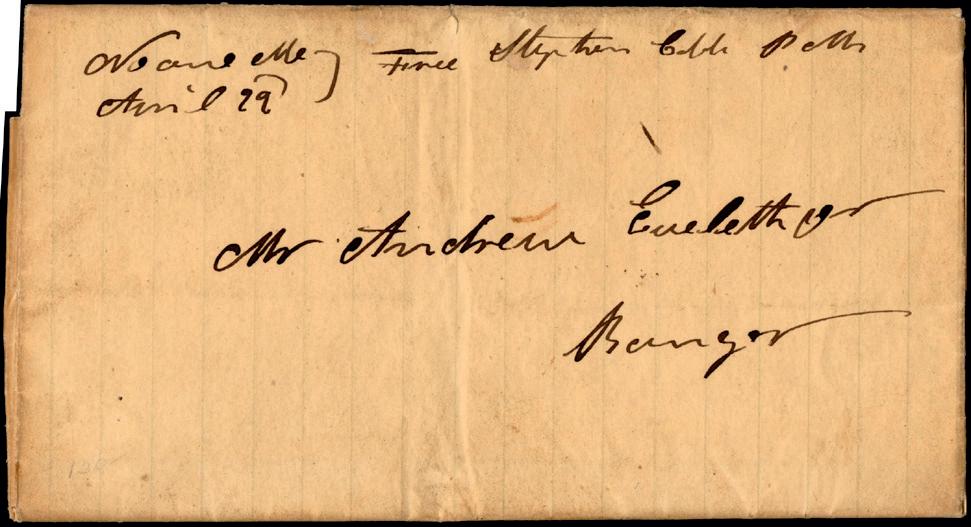 Me } Free Stephen Cobb P M
April 29
Mr Andrew Eveleth Jr
Bangor